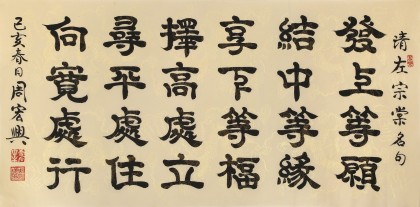 清左宗棠名句
發上等願
結中等緣
享下等福
擇高處立
尋平處住
向寬處行
己亥春日周宏興